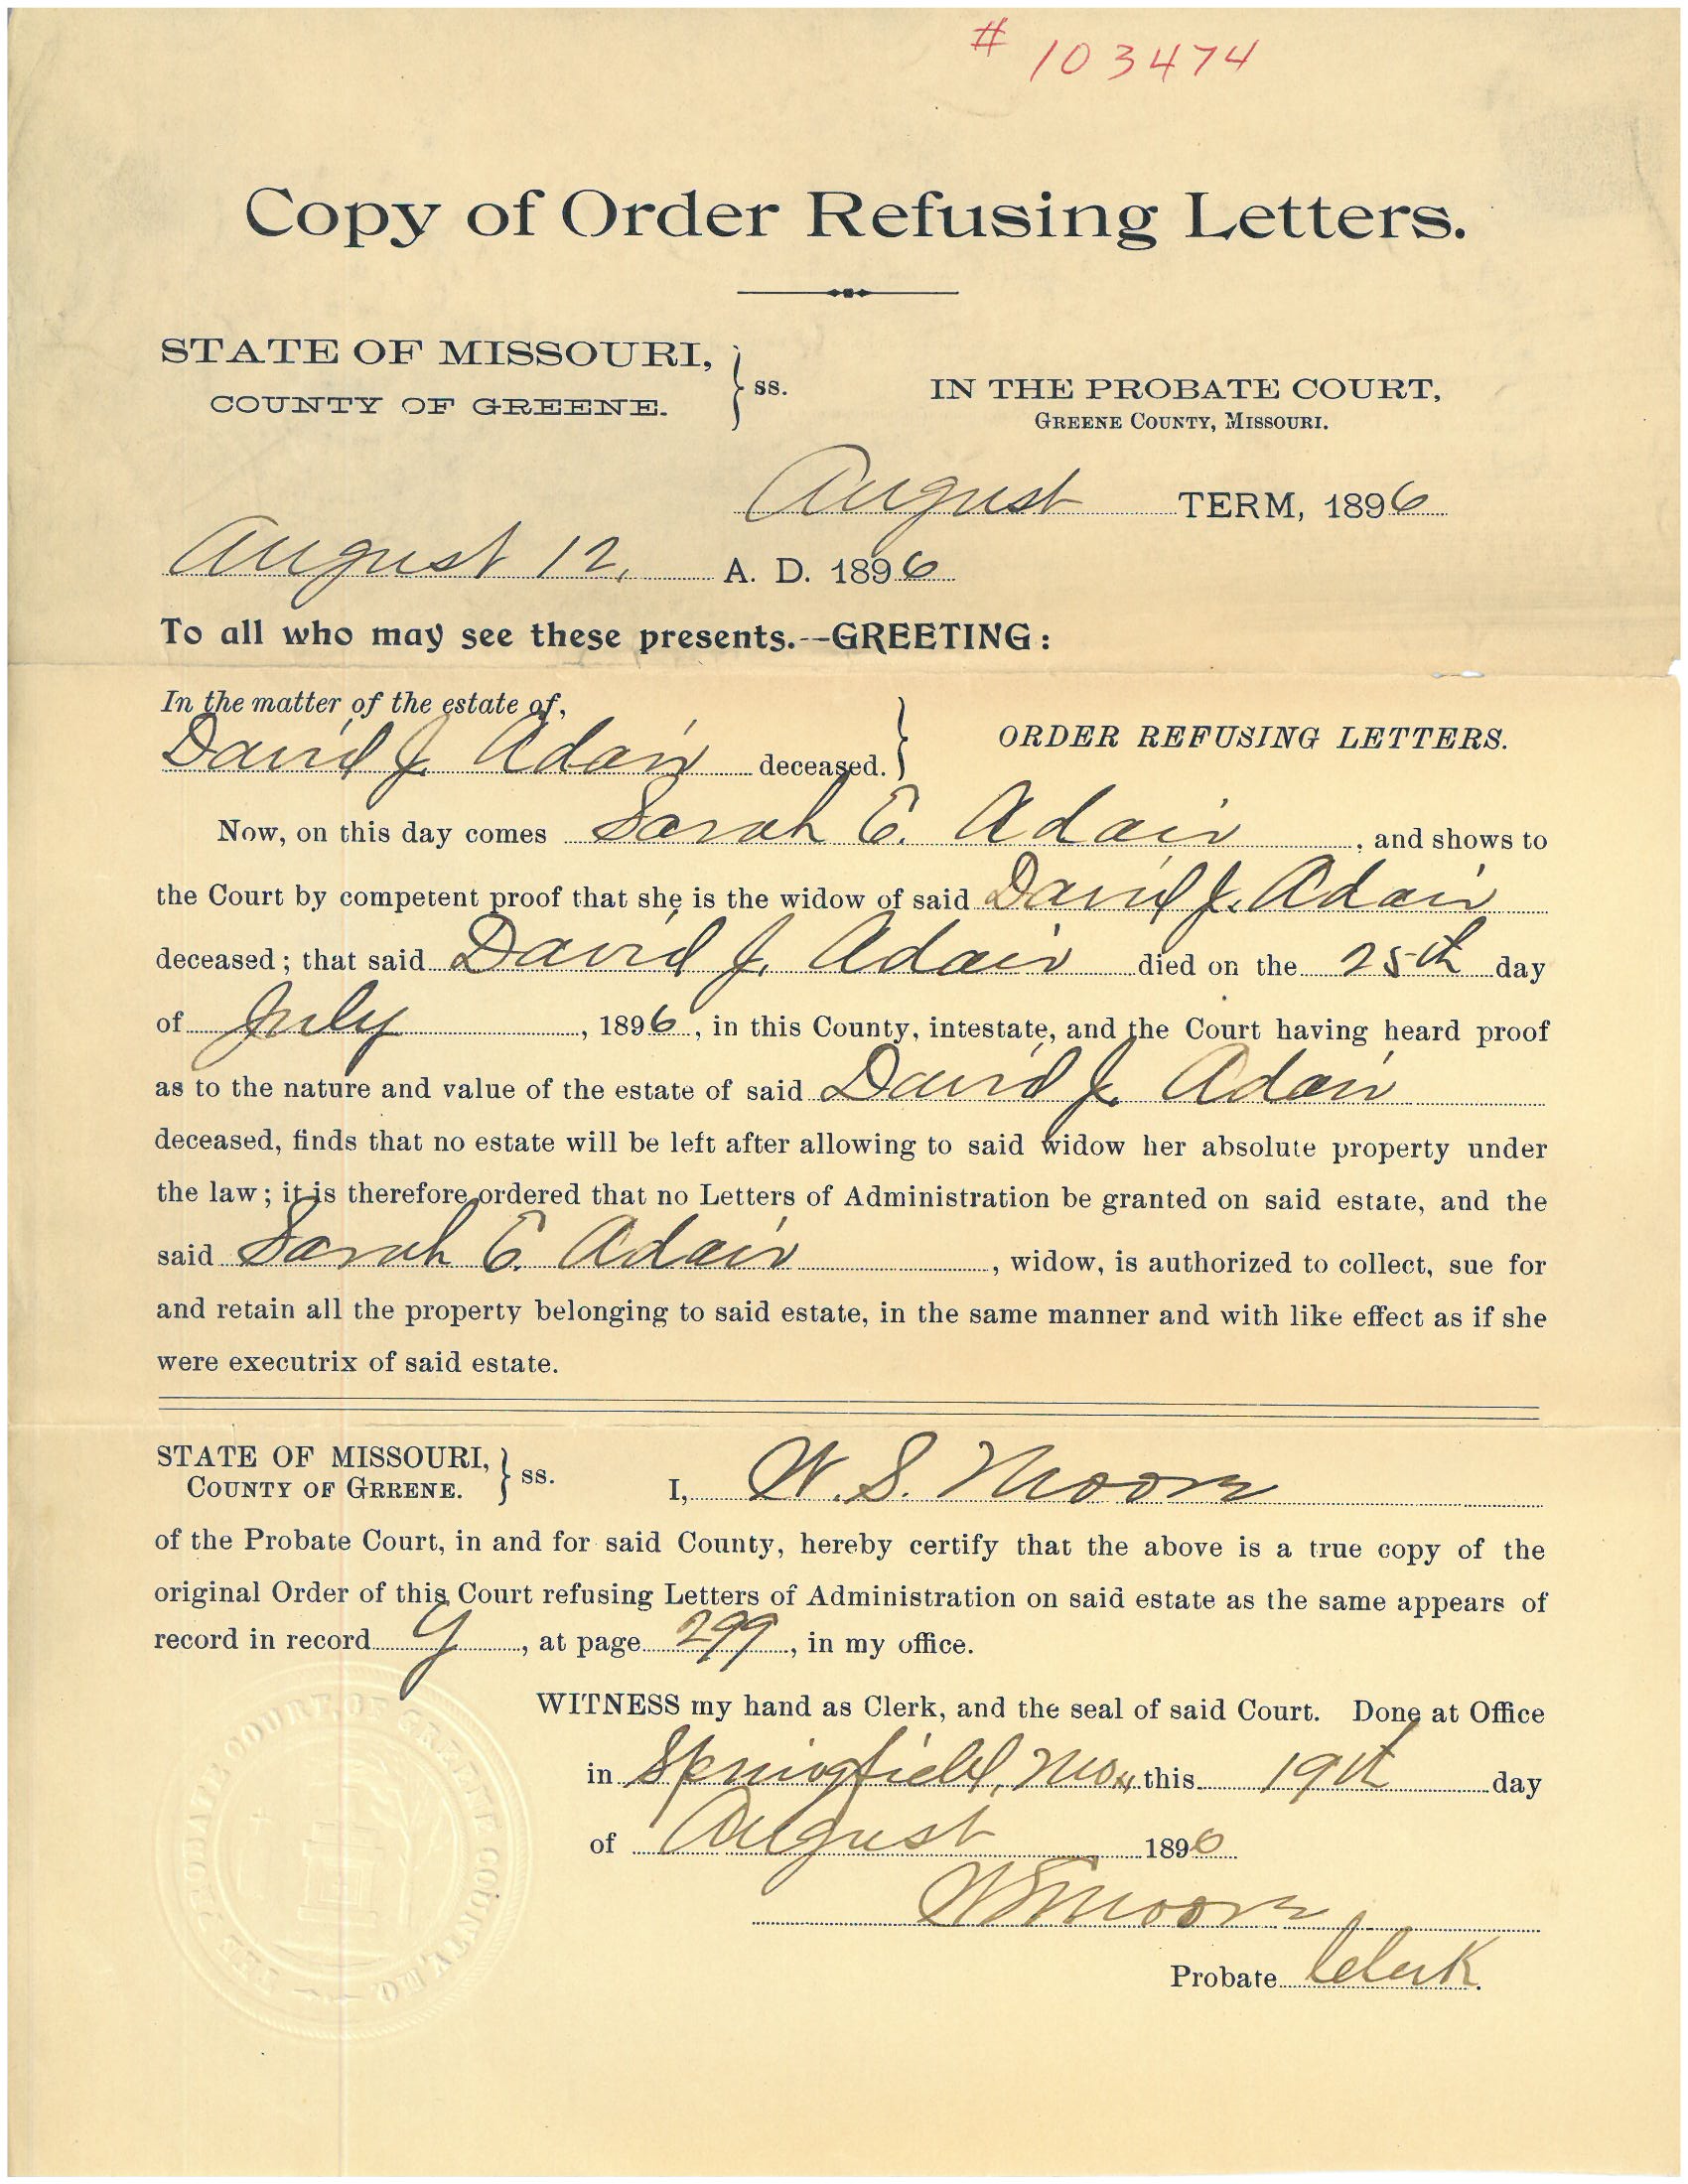 # 103474
Copy of Order Refusing Letters.
STATE OF MISSOURI, } ss.
COUNTY OF GREENE.
IN THE PROBATE COURT,
GREENE COUNTY, MISSOURI.
August TERM, 1896
August 12, A. D. 1896
To all who may see these presents.--GREETING:
In the matter of the estate of,
David J. Adair deceased. } ORDER REFUSING LETTERS.
Now, on this day comes Sarah E. Adair, and shows to
the Court by competent proof that she is the widow of said David J. Adair
deceased; that said David J. Adair died on the 25th day
of July, 1896, in this County, intestate, and the Court having heard proof
as to the nature and value of the estate of said David J. Adair
deceased, finds that no estate will be left after allowing to said widow her absolute property under
the law; it is therefore ordered that no Letters of Administration be granted on said estate, and the
said Sarah E. Adair, widow, is authorized to collect, sue for
and retain all the property belonging to said estate, in the same manner and with like effect as if she
were executrix of said estate.
STATE OF MISSOURI, } ss.
COUNTY OF GRRENE.
I, W. S. Moore
of the Probate Court, in and for said County, hereby certify that the above is a true copy of the
original Order of this Court refusing Letters of Administration on said estate as the same appears of
record in record G, at page 299, in my office.
WITNESS my hand as Clerk, and the seal of said Court. Done at Office
in Springfield, Mo., this 19th day
of August 1896
W S Moore
Probate Clerk.
THE PROBATE COURT OF GREENE COUNTY, MO.